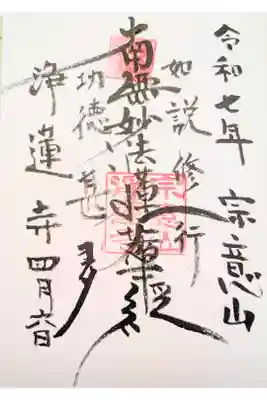 令和七年 宗意山
如説修行
南無妙法蓮華経
功徳甚多
浄蓮寺 四月六日
宗意山